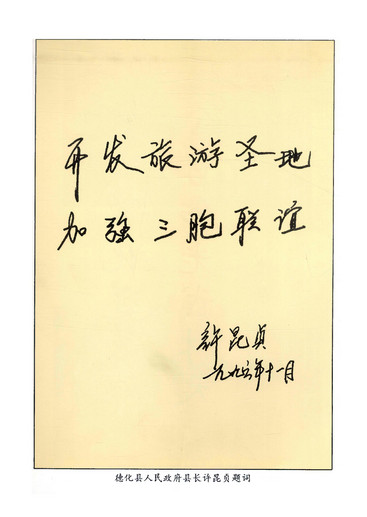 开发旅游圣地
加强三胞联谊
許昆贞
一九九五年十一月
德化县人民政府县长许昆贞题词